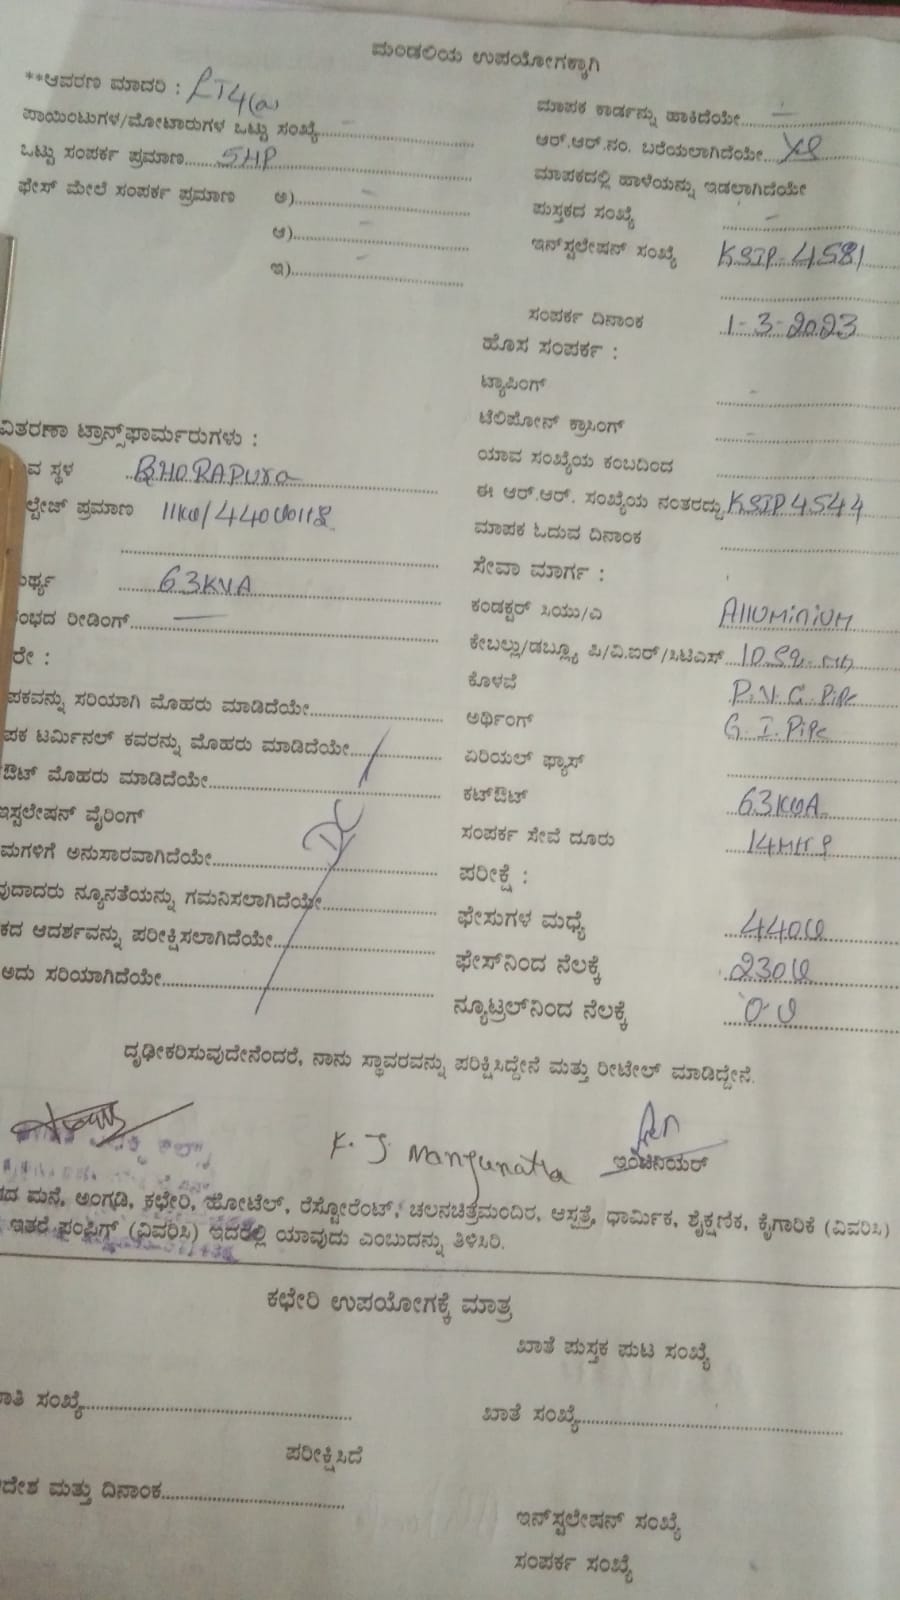 ಮಂಡಲಿಯ ಉಪಯೋಗಕ್ಕಾಗಿ
**ಆವರಣ ಮಾದರಿ : LT4(a)
ಪಾಯಿಂಟುಗಳ/ಮೋಟಾರುಗಳ ಒಟ್ಟು ಸಂಖ್ಯೆ
ಒಟ್ಟು ಸಂಪರ್ಕ ಪ್ರಮಾಣ 5HP
ಫೇಸ್ ಮೇಲೆ ಸಂಪರ್ಕ ಪ್ರಮಾಣ ಅ)
ಆ)
ಇ)
ಮಾಪಕ ಕಾರ್ಡನ್ನು ಹಾಕಿದೆಯೇ
ಆರ್.ಆರ್.ನಂ. ಬರೆಯಲಾಗಿದೆಯೇ
ಮಾಪಕದಲ್ಲಿ ಹಾಳೆಯನ್ನು ಇಡಲಾಗಿದೆಯೇ
ಪುಸ್ತಕದ ಸಂಖ್ಯೆ
ಇನ್‌ಸ್ಟಲೇಷನ್ ಸಂಖ್ಯೆ KSIP-4581
ಸಂಪರ್ಕ ದಿನಾಂಕ 1-3-2023
ಹೊಸ ಸಂಪರ್ಕ :
ಟ್ಯಾಪಿಂಗ್
ಟೆಲಿಪೋನ್ ಕ್ರಾಸಿಂಗ್
ಯಾವ ಸಂಖ್ಯೆಯ ಕಂಬದಿಂದ
ಈ ಆರ್.ಆರ್. ಸಂಖ್ಯೆಯ ನಂತರದ್ದು KSIP4544
ಮಾಪಕ ಓದುವ ದಿನಾಂಕ
ವಿತರಣಾ ಟ್ರಾನ್ಸ್‌ಫಾರ್ಮರುಗಳು :
ವ ಸ್ಥಳ BHORAPURa
ಲ್ಟೇಜ್ ಪ್ರಮಾಣ 11kv/440volts
ಮರ್ಥ್ಯ 63KVA
ಂಭದ ರೀಡಿಂಗ್
ರೇ :
ಪಕವನ್ನು ಸರಿಯಾಗಿ ಮೊಹರು ಮಾಡಿದೆಯೇ
ಪಕ ಟರ್ಮಿನಲ್ ಕವರನ್ನು ಮೊಹರು ಮಾಡಿದೆಯೇ
ಔಟ್ ಮೊಹರು ಮಾಡಿದೆಯೇ
ಇನ್ಸ್ಟಲೇಷನ್ ವೈರಿಂಗ್
ಮಗಳಿಗೆ ಅನುಸಾರವಾಗಿದೆಯೇ
ವುದಾದರು ನ್ಯೂನತೆಯನ್ನು ಗಮನಿಸಲಾಗಿದೆಯೇ
ಕದ ಆದರ್ಶವನ್ನು ಪರೀಕ್ಷಿಸಲಾಗಿದೆಯೇ
ಅದು ಸರಿಯಾಗಿದೆಯೇ
ಸೇವಾ ಮಾರ್ಗ :
ಕಂಡಕ್ಟರ್ ಸಿಯು/ಎ Alluminium
ಕೇಬಲ್ಲು/ಡಬ್ಲ್ಯೂ ಪಿ/ವಿ.ಐರ್/ಸಿಟಿಎಸ್ 10 Sq-mm
ಕೊಳವೆ P.V.C. Pipe
ಅರ್ಥಿಂಗ್ G.I. Pipe
ಏರಿಯಲ್ ಫ್ಯೂಸ್
ಕಟ್‌ಔಟ್ 63KVA
ಸಂಪರ್ಕ ಸೇವೆ ದೂರು 14Mtrs
ಪರೀಕ್ಷೆ :
ಫೇಸುಗಳ ಮಧ್ಯೆ 440V
ಫೇಸ್‌ನಿಂದ ನೆಲಕ್ಕೆ 230V
ನ್ಯೂಟ್ರಲ್‌ನಿಂದ ನೆಲಕ್ಕೆ 0-V
ದೃಢೀಕರಿಸುವುದೇನೆಂದರೆ, ನಾನು ಸ್ಥಾವರವನ್ನು ಪರಿಕ್ಷಿಸಿದ್ದೇನೆ ಮತ್ತು ರೀಟೇಲ್ ಮಾಡಿದ್ದೇನೆ.
K. J Manjunatha
ಇಂಜಿನಿಯರ್
ದ ಮನೆ, ಅಂಗಡಿ, ಕಛೇರಿ, ಹೋಟೆಲ್, ರೆಸ್ಟೋರೆಂಟ್, ಚಲನಚಿತ್ರಮಂದಿರ, ಆಸ್ಪತ್ರೆ, ಧಾರ್ಮಿಕ, ಶೈಕ್ಷಣಿಕ, ಕೈಗಾರಿಕೆ (ವಿವರಿಸಿ)
ಇತರೆ ಪಂಪಿಂಗ್ (ವಿವರಿಸಿ) ಇದರಲ್ಲಿ ಯಾವುದು ಎಂಬುದನ್ನು ತಿಳಿಸಿರಿ.
ಕಛೇರಿ ಉಪಯೋಗಕ್ಕೆ ಮಾತ್ರ
ಖಾತೆ ಪುಸ್ತಕ ಪುಟ ಸಂಖ್ಯೆ
ಾತಿ ಸಂಖ್ಯೆ
ಖಾತೆ ಸಂಖ್ಯೆ
ಪರೀಕ್ಷಿಸಿದೆ
ದೇಶ ಮತ್ತು ದಿನಾಂಕ
ಇನ್‌ಸ್ಟಲೇಷನ್ ಸಂಖ್ಯೆ
ಸಂಪರ್ಕ ಸಂಖ್ಯೆ